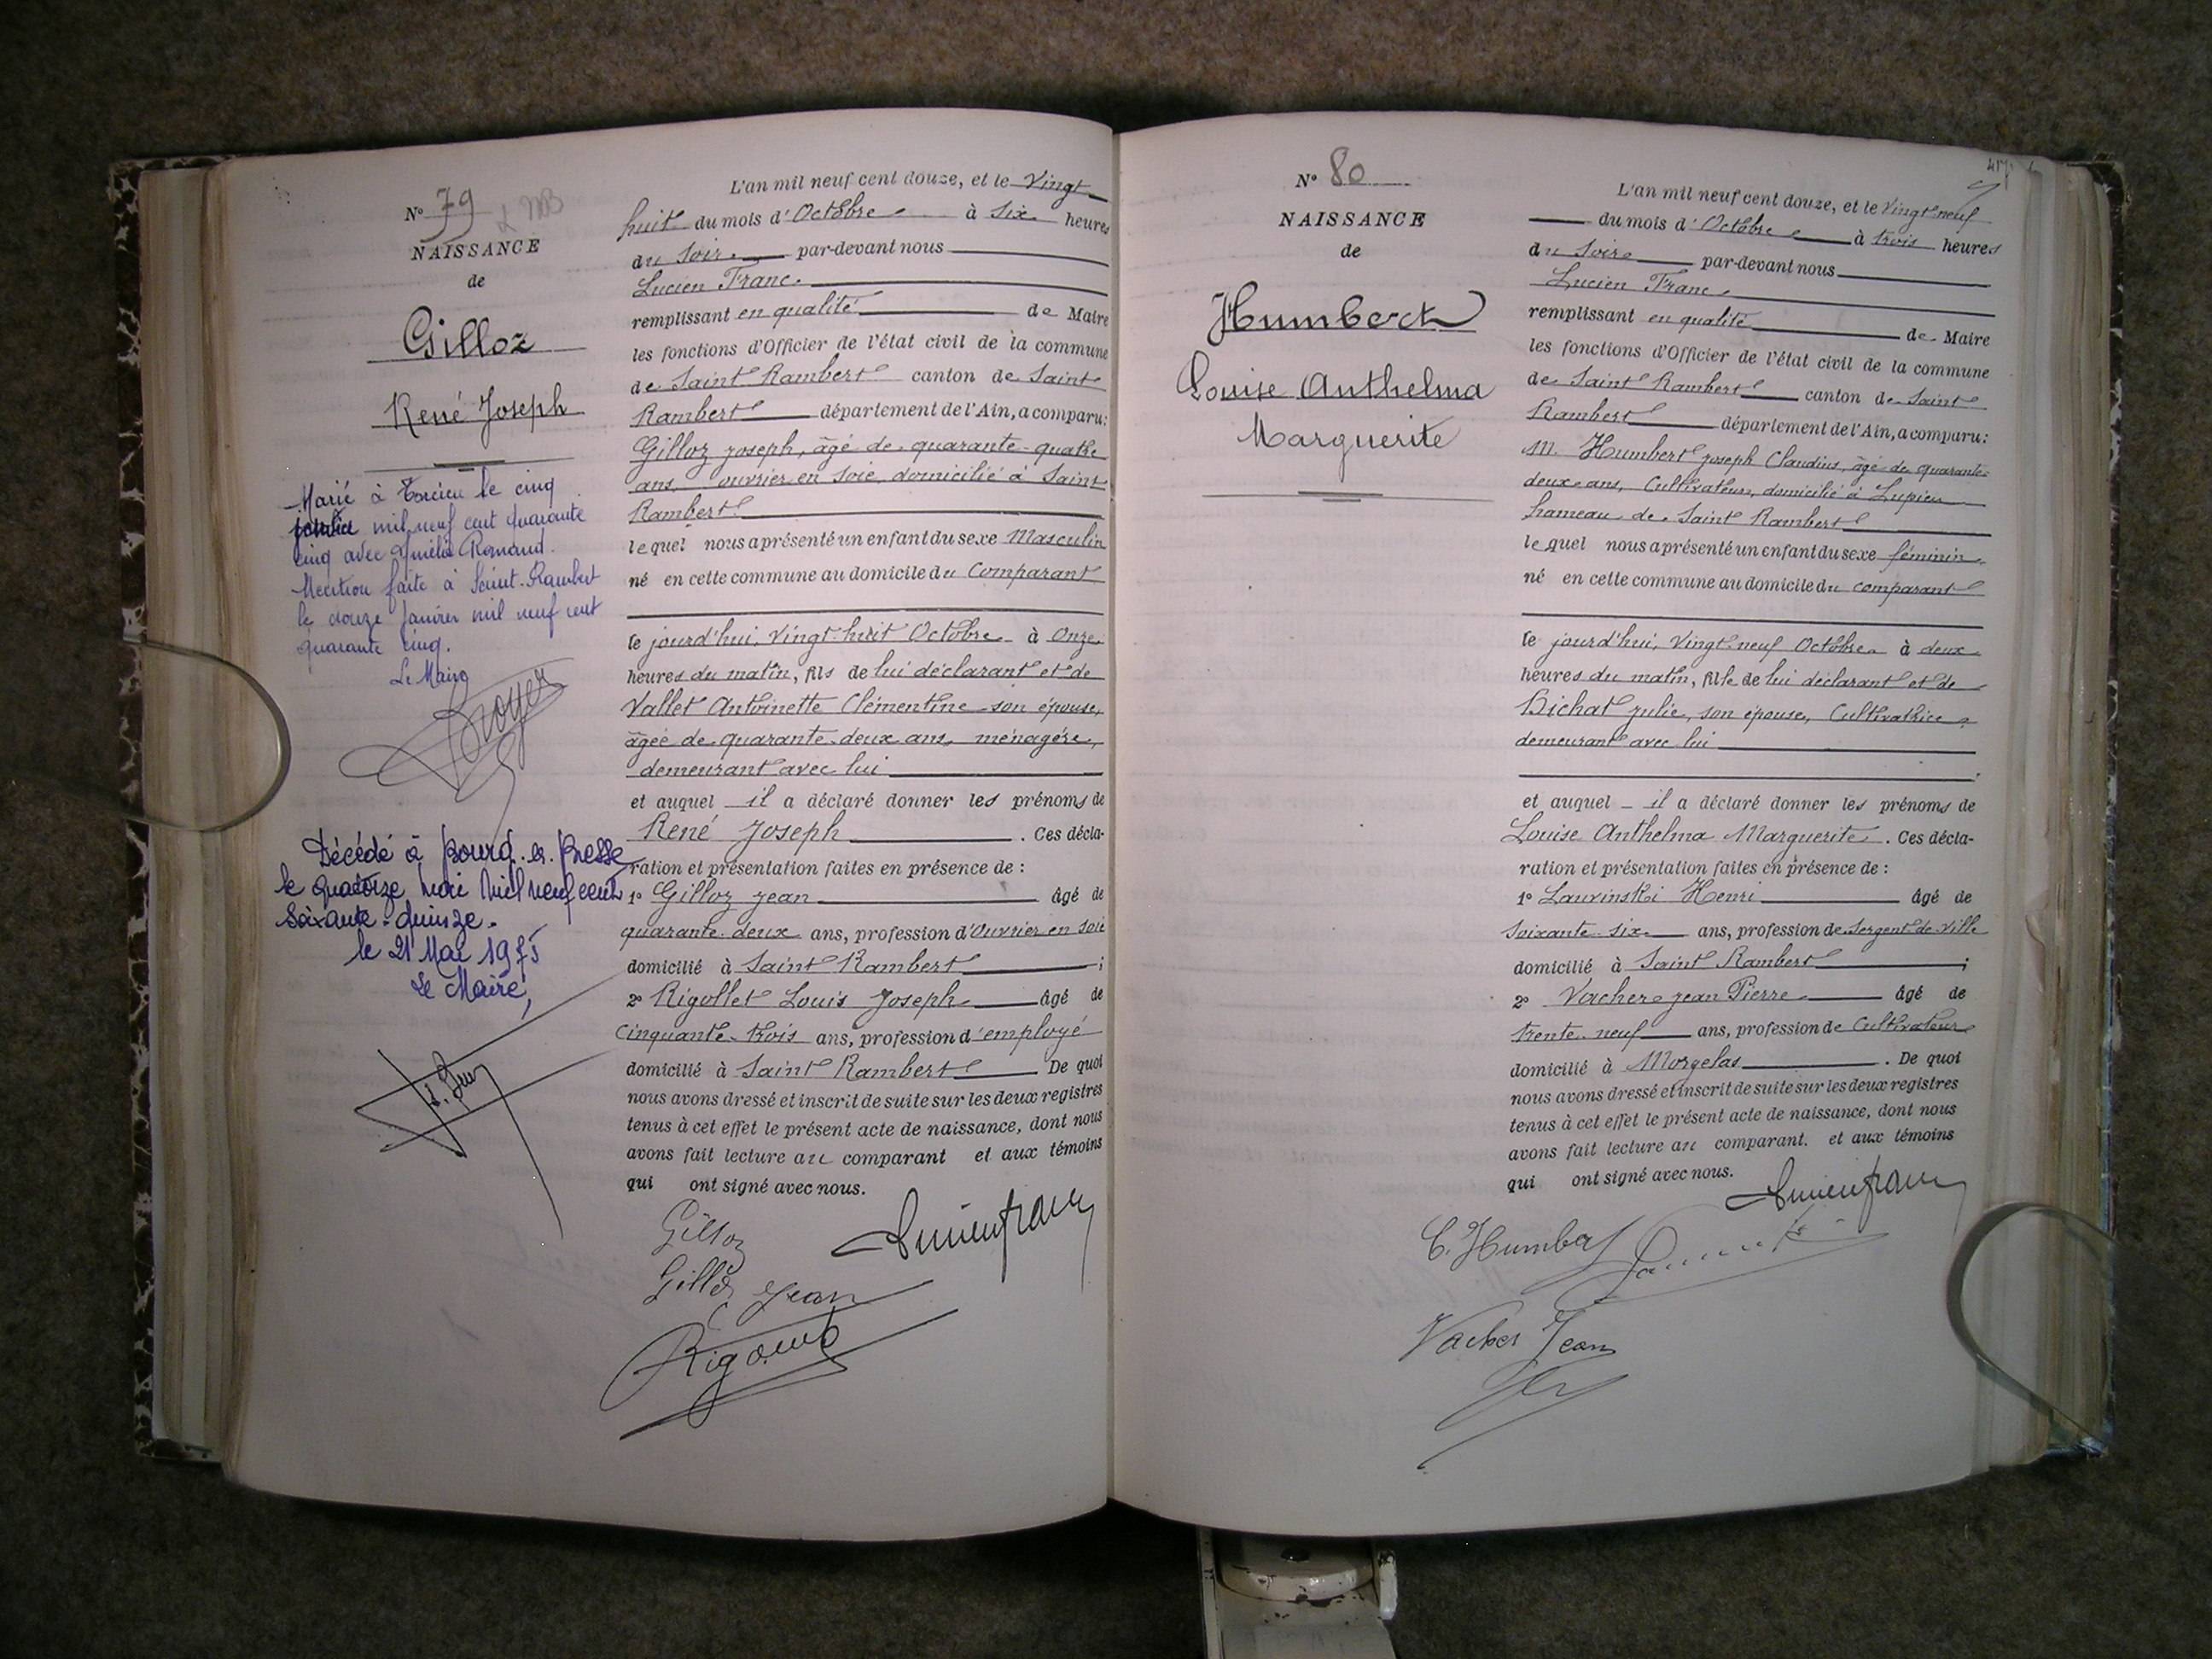 N° 79
NAISSANCE
de
Gilloz
René Joseph
Marié à Torcieu le cinq
janvier mil neuf cent quarante
cinq avec Amélie Romand.
Mention faite à Saint-Rambert
le douze Janvier mil neuf cent
quarante cinq.
Le Maire
Décédé à Bourg-en-Bresse
le quatorze mai mil neuf cent
soixante-quinze.
le 21 Mai 1975
Le Maire,
L'an mil neuf cent douze, et le Vingt
huit du mois d'Octobre à Six heures
du Soir par-devant nous
Lucien Franc
remplissant en qualité de Maire
les fonctions d'Officier de l'état civil de la commune
de Saint Rambert canton de Saint
Rambert département de l'Ain, a comparu:
Gilloz Joseph, âgé de quarante-quatre
ans, ouvrier en soie, domicilié à Saint
Rambert
lequel nous a présenté un enfant du sexe Masculin
né en cette commune au domicile du Comparant
le jourd'hui, Vingt-huit Octobre à Onze
heures du matin, fils de lui déclarant et de
Vallet Antoinette Clémentine son épouse,
âgée de quarante-deux ans, ménagère,
demeurant avec lui
et auquel il a déclaré donner les prénoms de
René Joseph . Ces décla-
ration et présentation faites en présence de :
1° Gilloz Jean âgé de
quarante-deux ans, profession d'Ouvrier en soie
domicilié à Saint Rambert ;
2° Rigollet Louis Joseph âgé de
Cinquante-trois ans, profession d'employé
domicilié à Saint Rambert De quoi
nous avons dressé et inscrit de suite sur les deux registres
tenus à cet effet le présent acte de naissance, dont nous
avons fait lecture au comparant et aux témoins
qui ont signé avec nous.
Gilloz
Lucien Franc
Gilloz Jean
N° 80
NAISSANCE
de
Humbert
Louise Anthelma
Marguerite
L'an mil neuf cent douze, et le Vingt-neuf
du mois d'Octobre à trois heures
du Soir par-devant nous
Lucien Franc
remplissant en qualité de Maire
les fonctions d'Officier de l'état civil de la commune
de Saint Rambert canton de Saint
Rambert département de l'Ain, a comparu:
M. Humbert Joseph Claudius, âgé de quarante-
deux ans, Cultivateur, domicilié à Lupieu
hameau de Saint Rambert
lequel nous a présenté un enfant du sexe féminin
né en cette commune au domicile du comparant
le jourd'hui, Vingt-neuf Octobre à deux
heures du matin, fille de lui déclarant et de
Bichat Julie, son épouse, Cultivatrice,
demeurant avec lui
et auquel il a déclaré donner les prénoms de
Louise Anthelma Marguerite . Ces décla-
ration et présentation faites en présence de :
1° Lauvinski Henri âgé de
Soixante-six ans, profession de Sergent de Ville
domicilié à Saint Rambert ;
2° Vacher Jean Pierre âgé de
trente-neuf ans, profession de Cultivateur
domicilié à Morgelas . De quoi
nous avons dressé et inscrit de suite sur les deux registres
tenus à cet effet le présent acte de naissance, dont nous
avons fait lecture au comparant. et aux témoins
qui ont signé avec nous.
Lucien Franc
C. Humbert
Vacher Jean